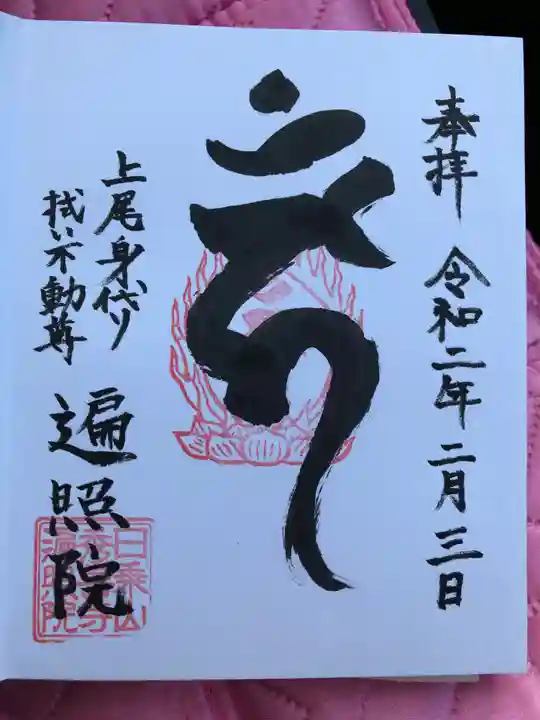 奉拝 令和二年二月三日
上尾身代り
拭い不動尊
遍照院
日乗山
秀善寺
遍照院